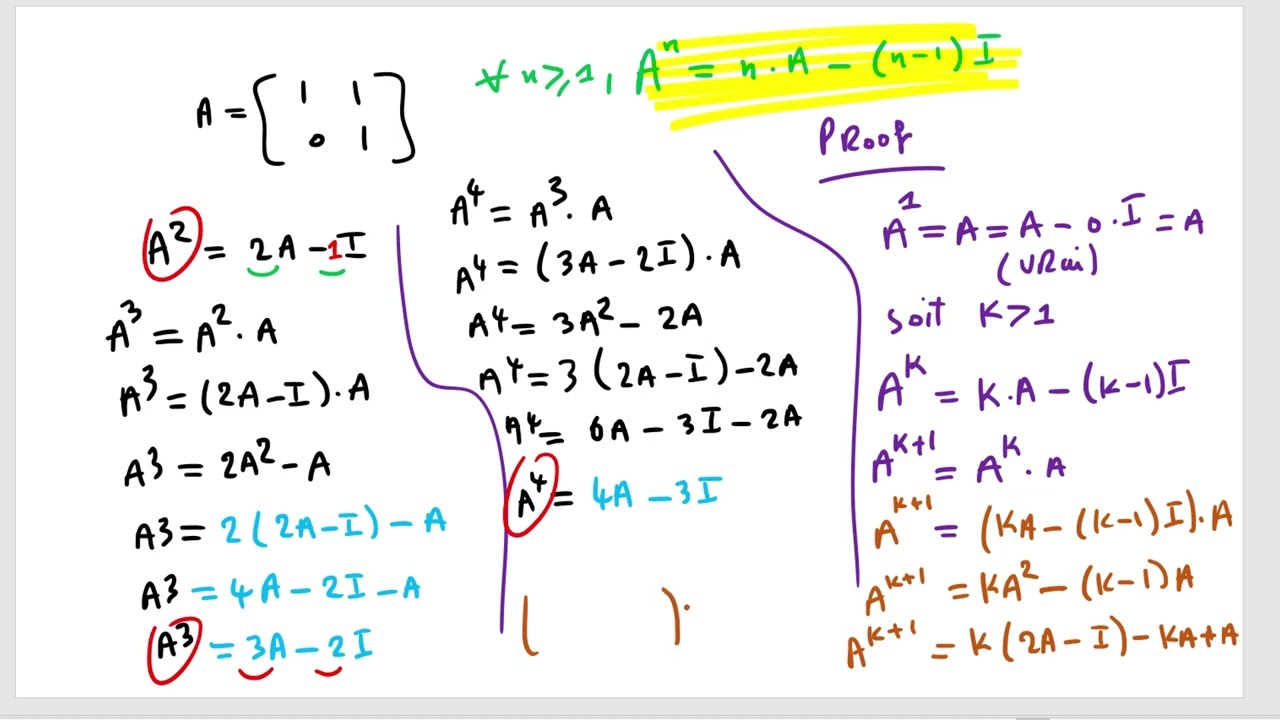 ∀ n ≥ 1, Aⁿ = n·A − (n−1) I
A = [ 1 1
0 1 ]
A² = 2A − 1I
A³ = A² · A
A³ = (2A − I) · A
A³ = 2A² − A
A³ = 2(2A − I) − A
A³ = 4A − 2I − A
A³ = 3A − 2I
A⁴ = A³ · A
A⁴ = (3A − 2I) · A
A⁴ = 3A² − 2A
A⁴ = 3(2A − I) − 2A
A⁴ = 6A − 3I − 2A
A⁴ = 4A − 3I
( )·
PRoof
A¹ = A = A − 0·I = A
(VRai)
soit K > 1
Aᴷ = K·A − (K−1)I
Aᴷ⁺¹ = Aᴷ · A
Aᴷ⁺¹ = (KA − (K−1)I)·A
Aᴷ⁺¹ = KA² − (K−1)A
Aᴷ⁺¹ = K(2A − I) − KA + A